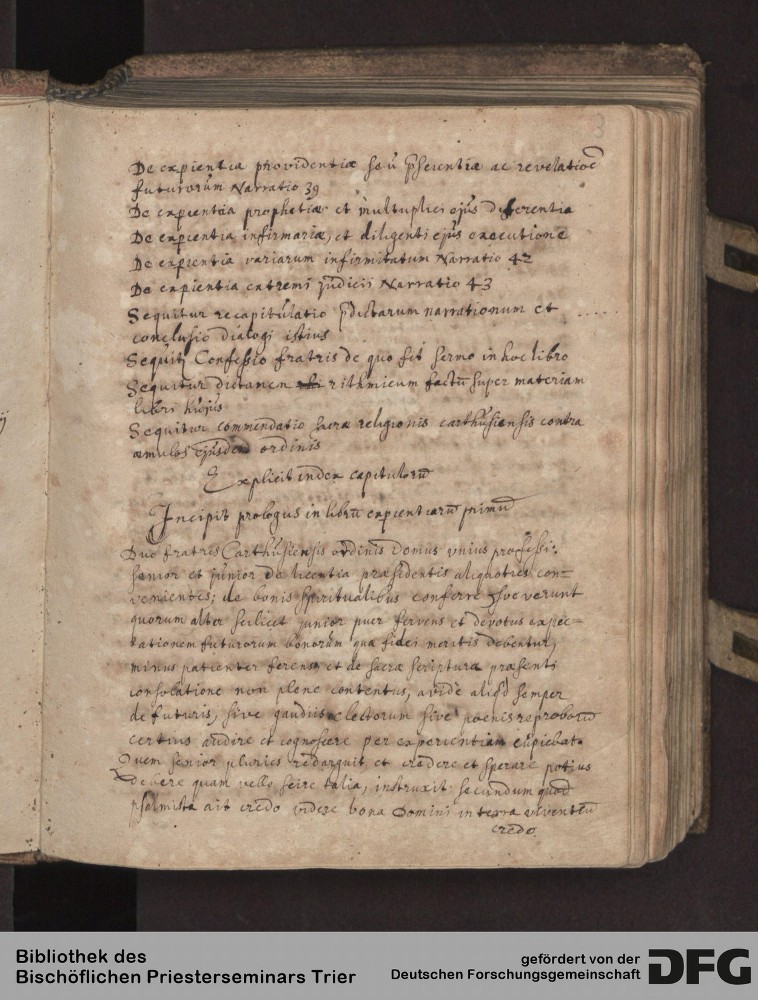 3
De expientia providentiæ seu p̃scientiæ ac revelatioē
futurorum Narratio 39
De expientia prophetiæ et multiplici ejus differentia
De expientia infirmariæ, et diligenti ejus executione
De expientia variarum infirmitatum Narratio 42
De expientia extremi judicii Narratio 43
Sequitur recapitulatio p̃dictarum narrationum et
conclusio dialogi istius
Sequit Confessio fratris de quo fit sermo in hoc libro
Sequitur dictamen rithmicum factū super materiam
libri hujus
Sequitur commendatio sacræ religionis carthusiensis contra
æmulos ejusdem ordinis
Explicit index capitulorū
Incipit prologus in librū expientiarū primū
Duo fratres Carthusiensis ordinis Domus unius professi:
senior et junior de licentia præsidentis aliquoties con=
venientes; de bonis spiritualibus conferre consueverunt
quorum alter scilicet junior puer fervens et devotus expec=
tationem futurorum bonorum quæ fidei meritis debentur,
minus patienter ferens, et de sacræ scripturæ præsenti
consolatione non plene contentus, avide aliqd semper
de futuris, sive gaudiis electorum sive poenis reproborū
certius audire et cognoscere per experientiam cupiebat.
Quem senior pluries redarguit, et credere et sperare potius
debere quam velle scire talia, instruxit: secundum quod
psalmista ait credo videre bona Domini in terra viventiū
credo
ij
Bibliothek des
Bischöflichen Priesterseminars Trier
gefördert von der
Deutschen Forschungsgemeinschaft
DFG